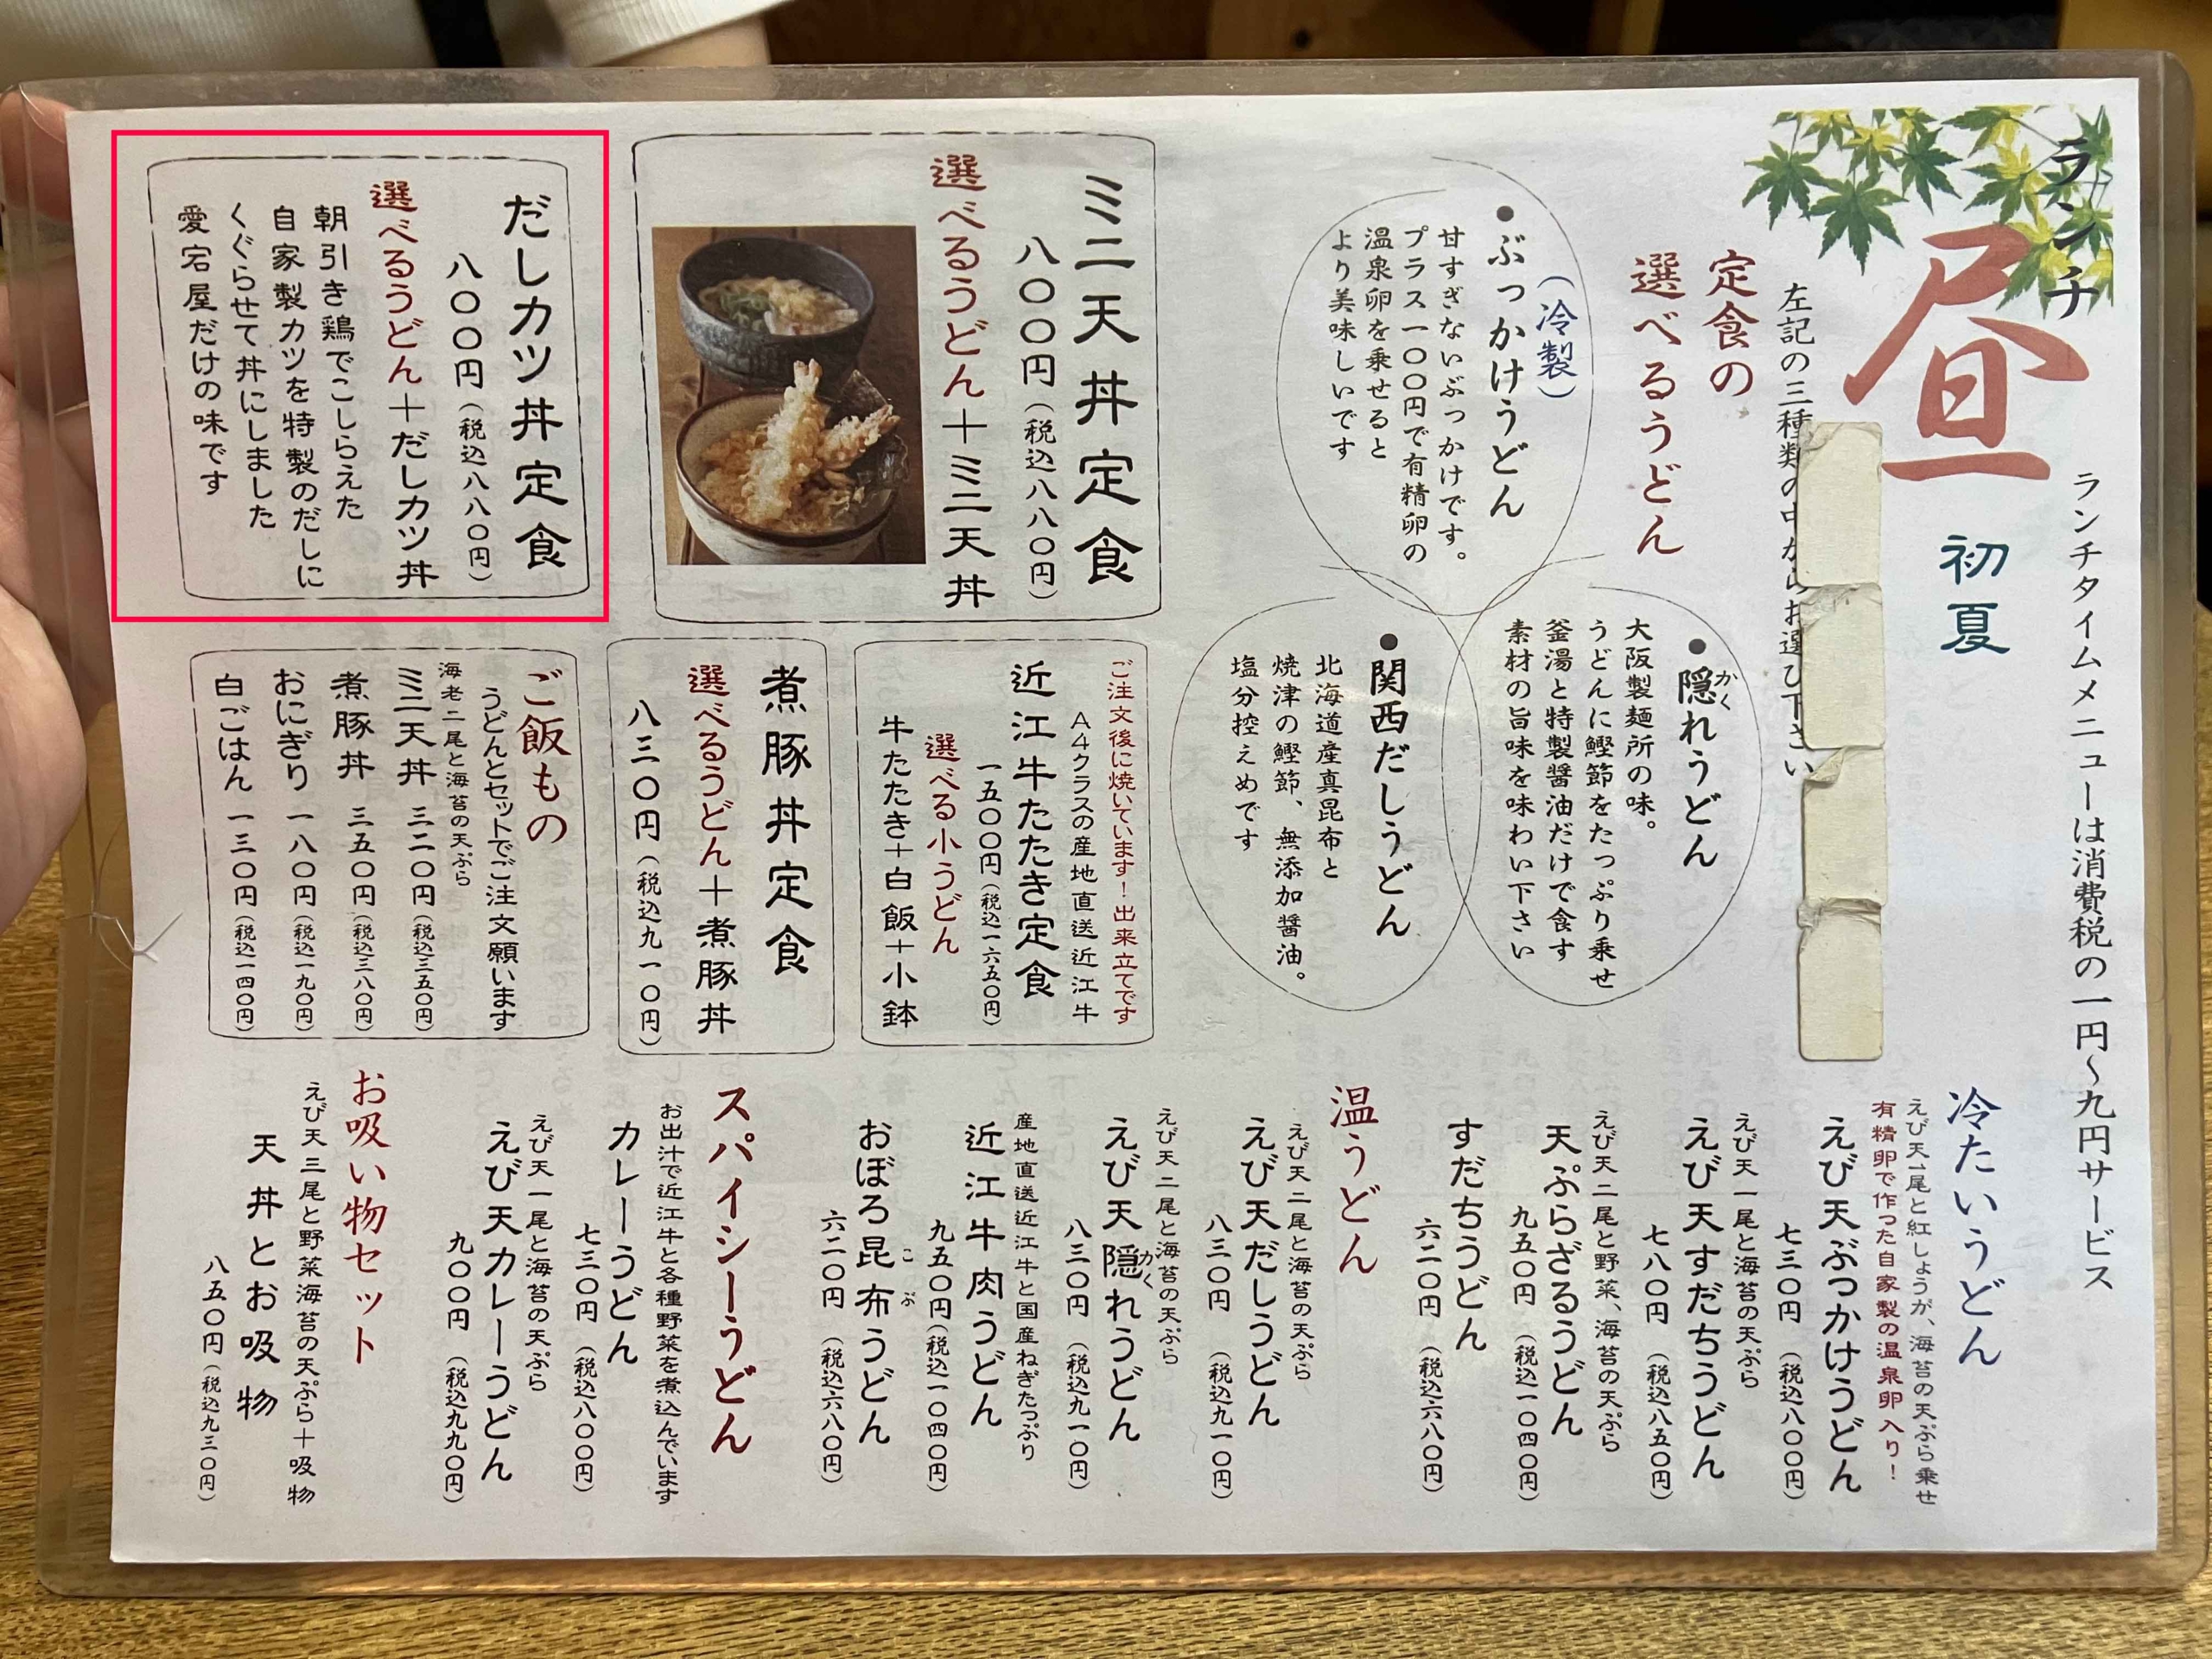 ランチ
昼
初夏
ランチタイムメニューは消費税の一円～九円サービス
左記の三種類の中からお選び下さい
定食の
選べるうどん
(冷製)
●ぶっかけうどん
甘すぎないぶっかけです。
プラス一〇〇円で有精卵の
温泉卵を乗せると
より美味しいです
●隠れうどん
かく
大阪製麺所の味。
うどんに鰹節をたっぷり乗せ
釜湯と特製醤油だけで食す
素材の旨味を味わい下さい
●関西だしうどん
北海道産真昆布と
焼津の鰹節、無添加醤油。
塩分控えめです
ミニ天丼定食
八〇〇円(税込八八〇円)
選べるうどん＋ミニ天丼
だしカツ丼定食
八〇〇円(税込八八〇円)
選べるうどん＋だしカツ丼
朝引き鶏でこしらえた
自家製カツを特製のだしに
くぐらせて丼にしました
愛宕屋だけの味です
ご注文後に焼いています！出来立てです
A4クラスの産地直送近江牛
近江牛たたき定食
一五〇〇円(税込一六五〇円)
選べる小うどん
牛たたき＋白飯＋小鉢
煮豚丼定食
選べるうどん＋煮豚丼
八三〇円(税込九一〇円)
ご飯もの
うどんとセットでご注文願います
海老二尾と海苔の天ぷら
ミニ天丼 三二〇円(税込三五〇円)
煮豚丼 三五〇円(税込三八〇円)
おにぎり 一八〇円(税込一九〇円)
白ごはん 一三〇円(税込一四〇円)
冷たいうどん
えび天一尾と紅しょうが、海苔の天ぷら乗せ
有精卵で作った自家製の温泉卵入り！
えび天ぶっかけうどん
七三〇円 (税込八〇〇円)
えび天一尾と海苔の天ぷら
えび天すだちうどん
七八〇円 (税込八五〇円)
えび天二尾と野菜、海苔の天ぷら
天ぷらざるうどん
九五〇円 (税込一〇四〇円)
すだちうどん
六二〇円 (税込六八〇円)
温うどん
えび天二尾と海苔の天ぷら
えび天だしうどん
八三〇円 (税込九一〇円)
えび天二尾と海苔の天ぷら
えび天隠れうどん
かく
八三〇円 (税込九一〇円)
産地直送近江牛と国産ねぎたっぷり
近江牛肉うどん
九五〇円(税込一〇四〇円)
おぼろ昆布うどん
こぶ
六二〇円 (税込六八〇円)
スパイシーうどん
お出汁で近江牛と各種野菜を煮込んでいます
カレーうどん
七三〇円 (税込八〇〇円)
えび天一尾と海苔の天ぷら
えび天カレーうどん
九〇〇円 (税込九九〇円)
お吸い物セット
えび天三尾と野菜海苔の天ぷら＋吸物
天丼とお吸物
八五〇円(税込九三〇円)